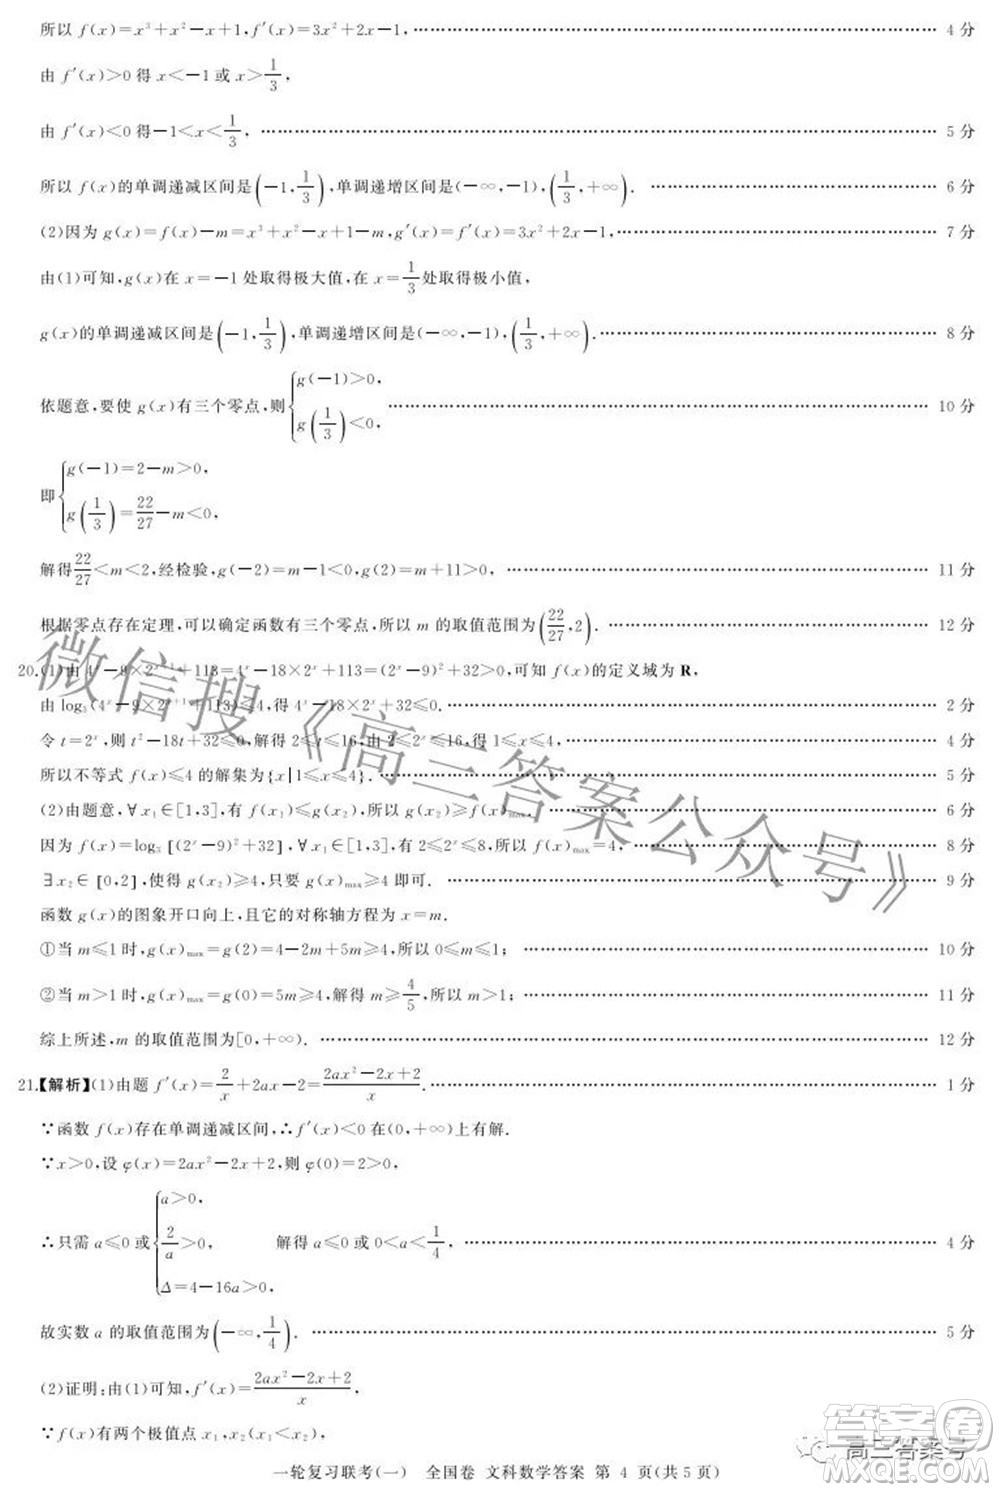 所以 f(x)=x³+x²-x+1,f′(x)=3x²+2x-1,………… 4 分
由 f′(x)>0 得 x<-1 或 x>1/3,
由 f′(x)<0 得-1<x<1/3,………… 5 分
所以 f(x)的单调递减区间是(-1,1/3),单调递增区间是(-∞,-1),(1/3,+∞).………… 6 分
(2)因为 g(x)=f(x)-m=x³+x²-x+1-m,g′(x)=f′(x)=3x²+2x-1,………… 7 分
由(1)可知,g(x)在 x=-1处取得极大值,在 x=1/3处取得极小值,
g(x)的单调递减区间是(-1,1/3),单调递增区间是(-∞,-1),(1/3,+∞).………… 8 分
依题意,要使 g(x)有三个零点,则{g(-1)>0, g(1/3)<0,………… 10 分
即{g(-1)=2-m>0, g(1/3)=22/27-m<0,
解得22/27<m<2,经检验,g(-2)=m-1<0,g(2)=m+11>0,………… 11 分
根据零点存在定理,可以确定函数有三个零点,所以 m 的取值范围为(22/27,2).………… 12 分
20.(1)由 4ˣ-9×2ˣ⁺¹+113=4ˣ-18×2ˣ+113=(2ˣ-9)²+32>0,可知 f(x)的定义域为 R,
由 log₃(4ˣ-9×2ˣ⁺¹+113)≤4,得 4ˣ-18×2ˣ+32≤0.………… 2 分
令 t=2ˣ,则 t²-18t+32≤0,解得 2≤t≤16,由 2≤2ˣ≤16,得 1≤x≤4,………… 4 分
所以不等式 f(x)≤4 的解集为{x|1≤x≤4}.………… 5 分
(2)由题意,∀x₁∈[1,3],有 f(x₁)≤g(x₂),所以 g(x₂)≥f(x)max.………… 6 分
因为 f(x)=log₃[(2ˣ-9)²+32],∀x∈[1,3],有 2≤2ˣ≤8,所以 f(x)max=4,………… 8 分
∃x₂∈[0,2],使得 g(x₂)≥4,只要 g(x)max≥4 即可.………… 9 分
函数 g(x)的图象开口向上,且它的对称轴方程为 x=m.
①当 m≤1 时,g(x)max=g(2)=4-2m+5m≥4,所以 0≤m≤1;………… 10 分
②当 m>1 时,g(x)max=g(0)=5m≥4,解得 m≥4/5,所以 m>1;………… 11 分
综上所述,m 的取值范围为[0,+∞).………… 12 分
21.【解析】(1)由题 f′(x)=2/x+2ax-2=(2ax²-2x+2)/x.………… 1 分
∵函数 f(x)存在单调递减区间,∴f′(x)<0 在(0,+∞)上有解.
∵x>0,设 φ(x)=2ax²-2x+2,则 φ(0)=2>0,
∴只需 a≤0 或{a>0, 2/a>0, Δ=4-16a>0, 解得 a≤0 或 0<a<1/4,………… 4 分
故实数 a 的取值范围为(-∞,1/4).………… 5 分
(2)证明:由(1)可知,f′(x)=(2ax²-2x+2)/x,
∵f(x)有两个极值点 x₁,x₂(x₁<x₂),
一轮复习联考(一) 全国卷 文科数学答案 第 4 页(共 5 页)
微信搜《高三答案公众号》
高三答案号
答案圈
MXQE.COM